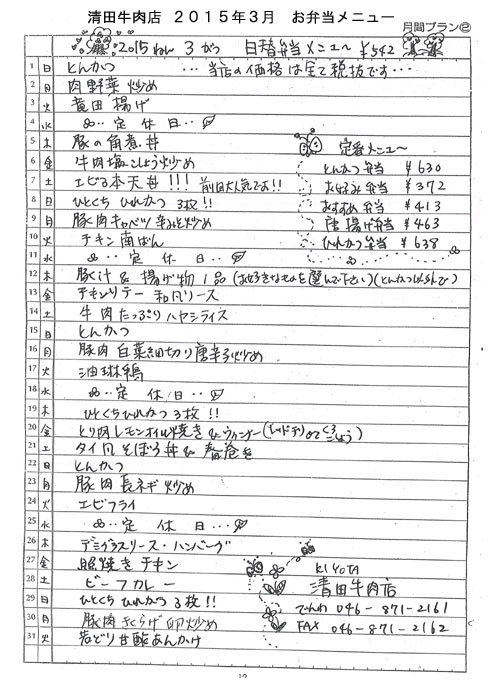 清田牛肉店 2015年3月 お弁当メニュー
月間プラン②
2015ねん 3がつ 日替弁当メニュー ¥542
1 日 とんかつ …当店の価格は全て税抜です…
2 月 肉野菜炒め
3 火 竜田揚げ
4 水 定休日
5 木 豚の角煮丼
6 金 牛肉塩こしょう炒め
7 土 エビ3本天丼!!! 前回大人気です!!
8 日 ひとくちひれかつ3枚!!
9 月 豚肉キャベツ辛みそ炒め
10 火 チキン南ばん
11 水 定休日
12 木 豚汁&揚げ物1品(お好きなものを選んで下さい)(とんかつ以外で)
13 金 チキンソテー和風ソース
14 土 牛肉たっぷりハヤシライス
15 日 とんかつ
16 月 豚肉白菜細切り唐辛子炒め
17 火 油琳鶏
18 水 定休日
19 木 ひとくちひれかつ3枚!!
20 金 とり肉レモンオイル焼き&ウィンナー
21 土 タイ風そぼろ丼&春巻き
22 日 とんかつ
23 月 豚肉長ネギ炒め
24 火 エビフライ
25 水 定休日
26 木 デミグラスソース・ハンバーグ
27 金 照焼きチキン
28 土 ビーフカレー
29 日 ひとくちひれかつ3枚!!
30 月 豚肉きくらげ卵炒め
31 火 若どり甘酢あんかけ
定番メニュー
とんかつ弁当 ¥630
お好み弁当 ¥372
おすすめ弁当 ¥413
唐揚げ弁当 ¥463
ひれかつ弁当 ¥638
KIYOTA
清田牛肉店
でんわ 046-871-2161
FAX 046-871-2162